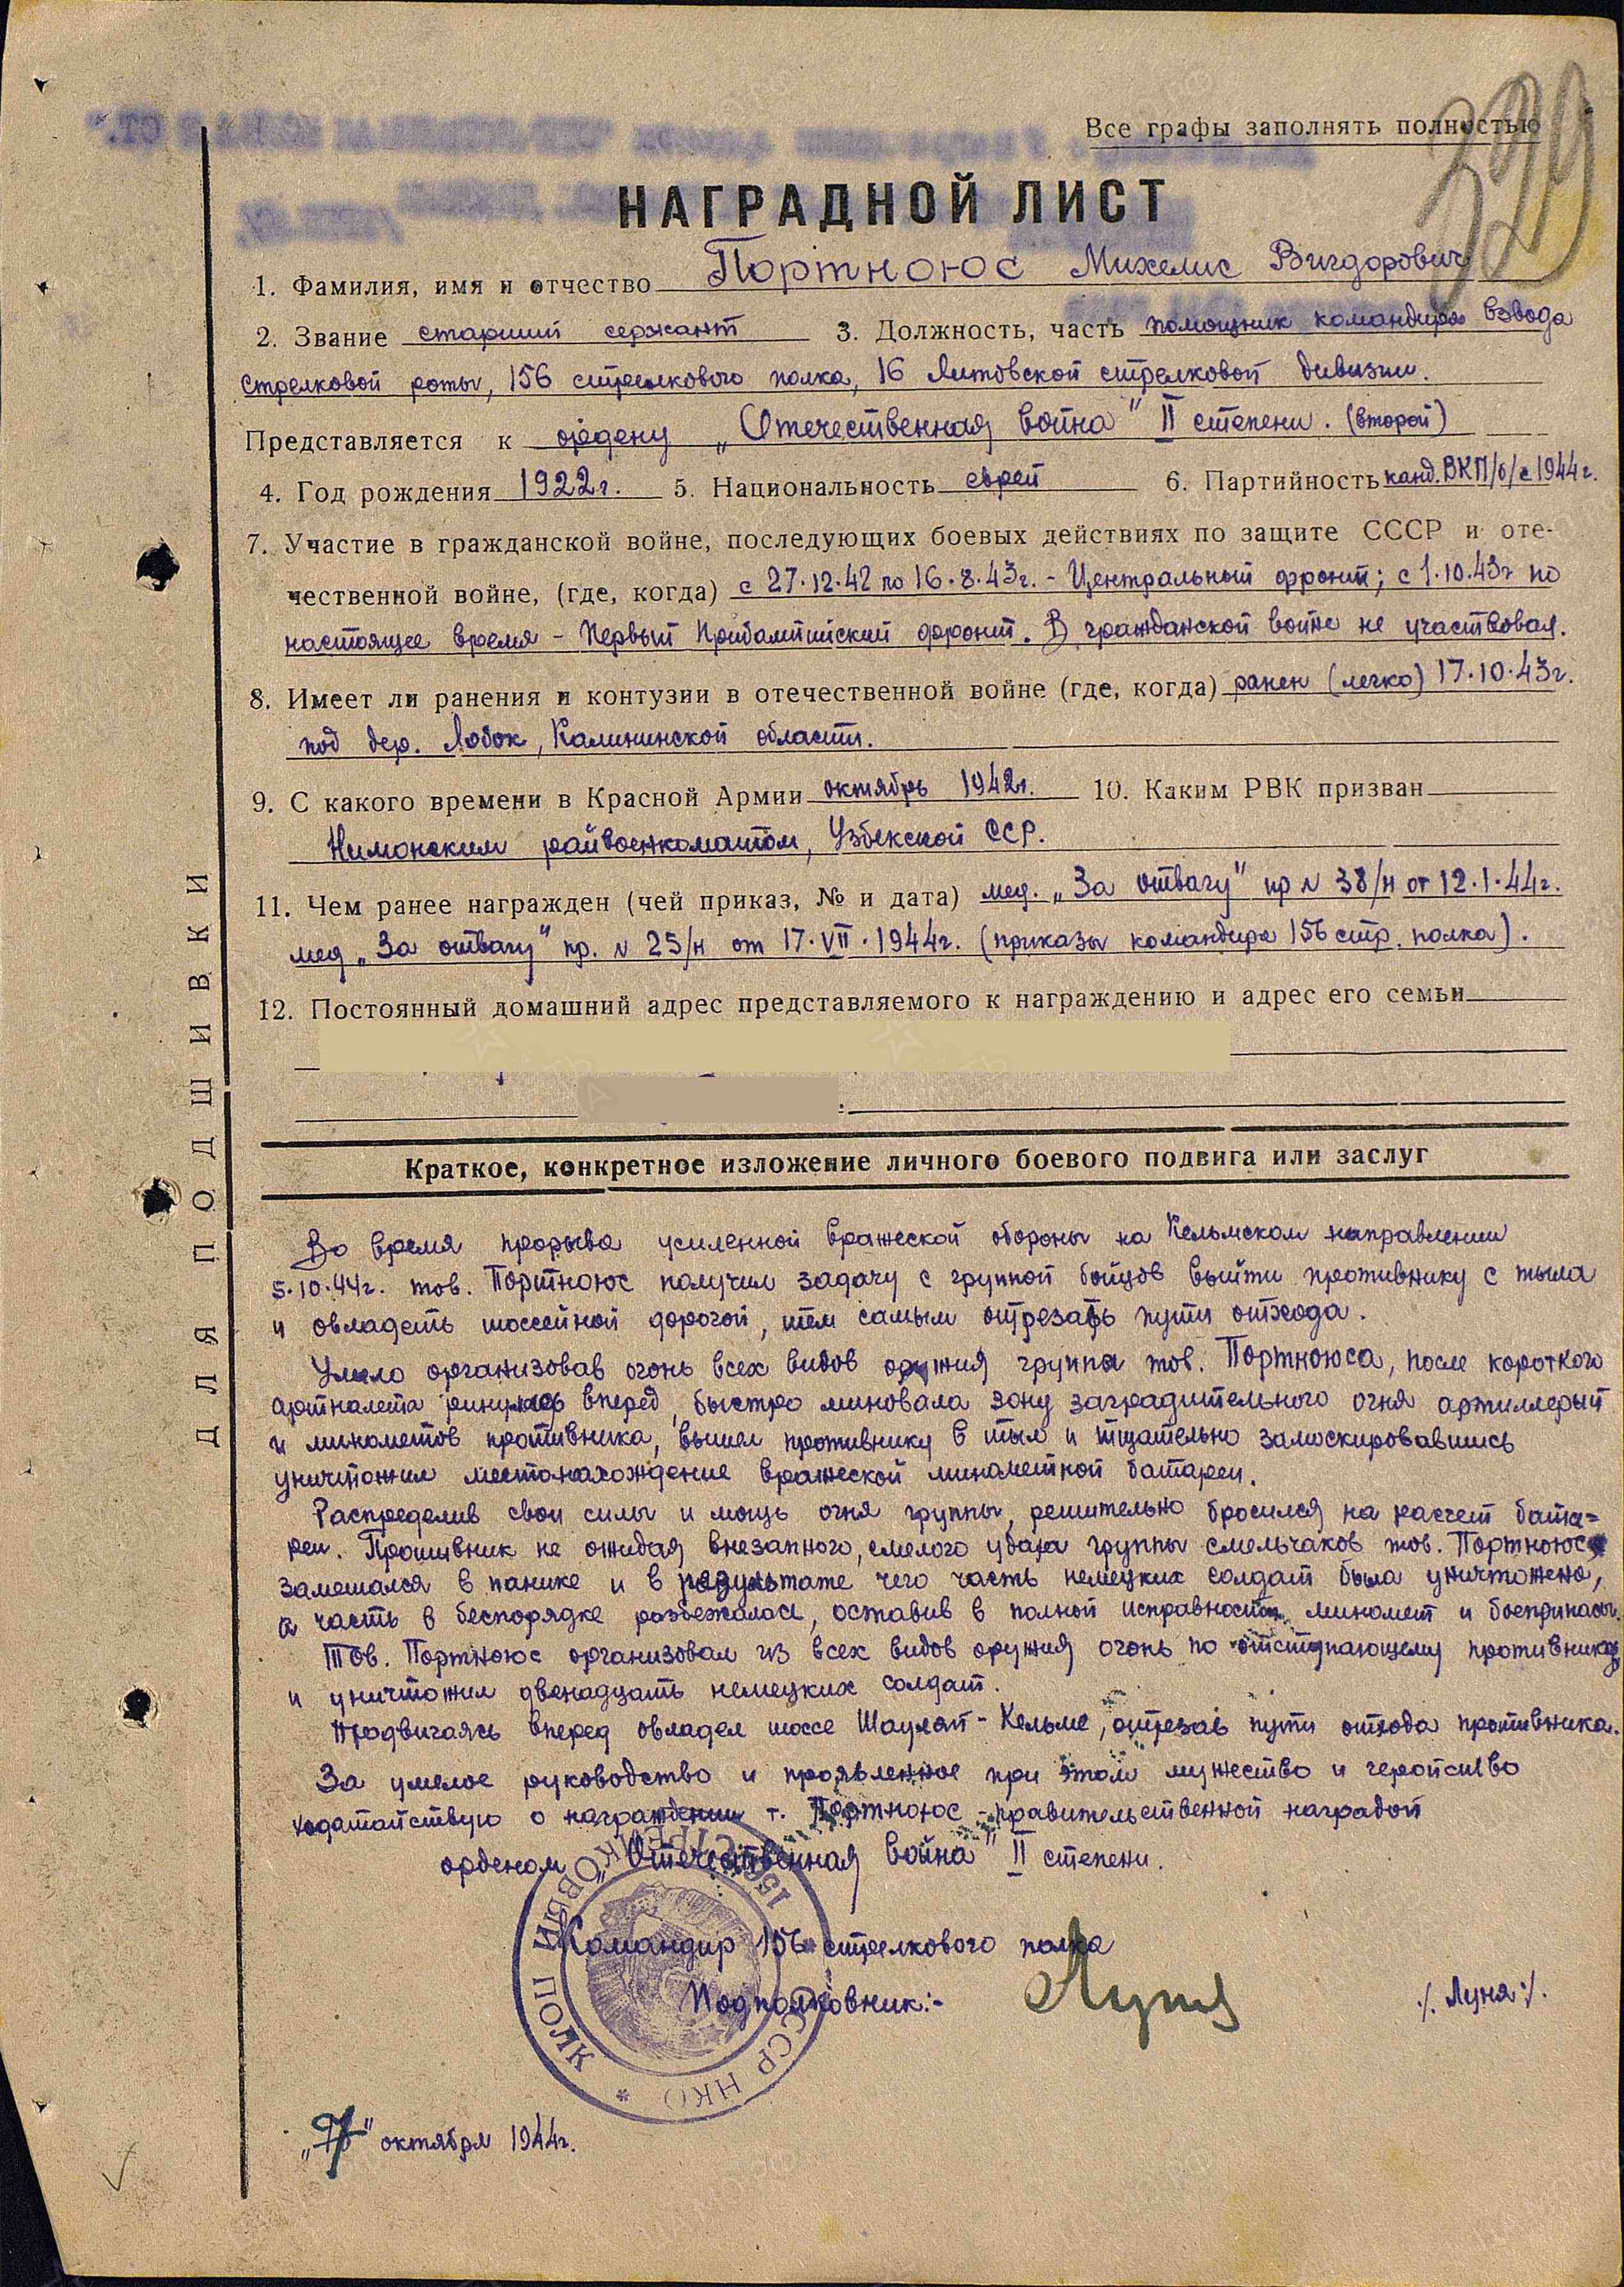 Все графы заполнять полностью
329
НАГРАДНОЙ ЛИСТ
1. Фамилия, имя и отчество Портноюс Михелис Вигдорович
2. Звание старший сержант 3. Должность, часть помощник командира взвода
стрелковой роты, 156 стрелкового полка, 16 Литовской стрелковой дивизии.
Представляется к ордену „Отечественная война" II степени. (второй)
4. Год рождения 1922г. 5. Национальность еврей 6. Партийность канд. ВКП/б/ с 1944г.
7. Участие в гражданской войне, последующих боевых действиях по защите СССР и оте-
чественной войне, (где, когда) с 27.12.42 по 16.8.43г. - Центральный фронт; с 1.10.43г по
настоящее время - Первый Прибалтийский фронт. В гражданской войне не участвовал.
8. Имеет ли ранения и контузии в отечественной войне (где, когда) ранен (легко) 17.10.43г.
под дер. Лобок, Калининской области.
9. С какого времени в Красной Армии октябрь 1942г. 10. Каким РВК призван
райвоенкоматом, Узбекской ССР.
11. Чем ранее награжден (чей приказ, № и дата) мед. „За отвагу" пр N 38/н от 12.1.44г.
мед „За отвагу" пр. N 25/н от 17.VII.1944г. (приказы командира 156 стр. полка).
12. Постоянный домашний адрес представляемого к награждению и адрес его семьи
Краткое, конкретное изложение личного боевого подвига или заслуг
Во время прорыва усиленной вражеской обороны на Кельмском направлении
5.10.44г. тов. Портноюс получил задачу с группой бойцов выйти противнику с тыла
и овладеть шоссейной дорогой, тем самым отрезать пути отхода.
Умело организовав огонь всех видов оружия группа тов. Портноюса, после короткого
артналета ринулась вперед, быстро миновала зону заградительного огня артиллерый
и минометов противника, вышел противнику в тыл и тщательно замаскировавшись
уничтожил местонахождение вражеской минометной батареи.
Распределив свои силы и мощь огня группы, решительно бросился на расчет бата=
реи. Противник не ожидая внезапного, смелого удара группы смельчаков тов. Портноюс
замешался в панике и в результате чего часть немецких солдат была уничтожена,
а часть в беспорядке разбежалась, оставив в полной исправности миномет и боеприпасы.
Тов. Портноюс организовал из всех видов оружия огонь по отступающему противнику
и уничтожил двенадцать немецких солдат.
Продвигаясь вперед овладел шоссе Шауляй - Кельме, отрезав пути отхода противника.
За умелое руководство и проявленное при этом мужество и геройство
ходатайствую о награждении т. Портноюс - правительственной наградой
орденом „Отечественная война" II степени.
Командир 156 стрелкового полка
Подполковник:-
Луня
/. Луня /.
156 СТРЕЛКОВЫЙ ПОЛК * НКО СССР
„7" октября 1944г.
ДЛЯ ПОДШИВКИ